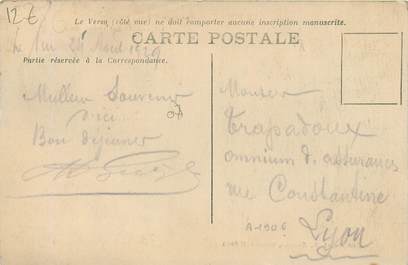 12€
Le Verso (côté vue) ne doit comporter aucune inscription manuscrite.
Le 24 1929
CARTE POSTALE
Partie réservée à la Correspondance.
Meilleur Souvenir
d'ici
Bon déjeuner
Monsieur
Trapadoux
omnium d. assurances
rue Constantine
A-1906
Lyon